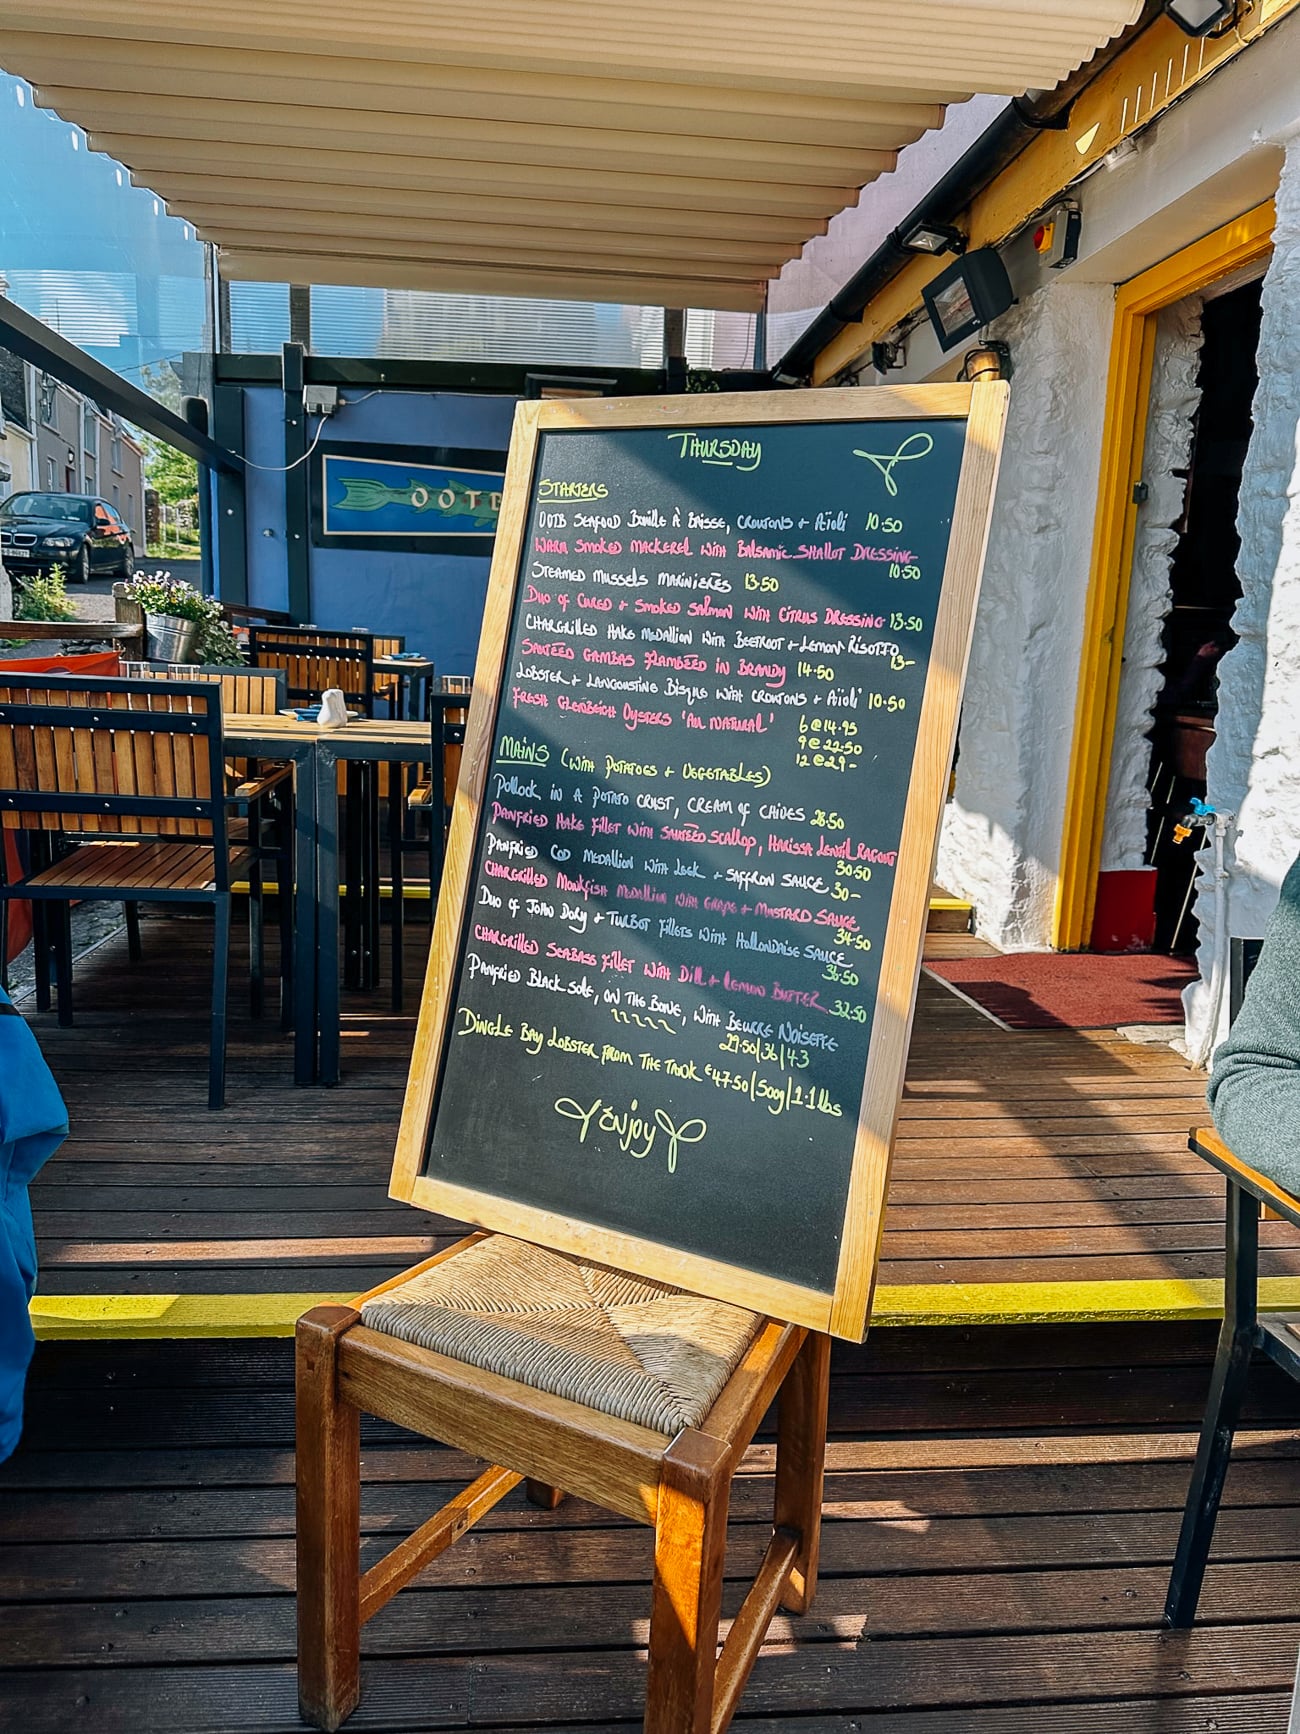 OOTB
THURSDAY
STARTERS
OOTB SEAFOOD Bouille À BAISSE, CROUTONS + Aïoli 10.50
WARM SMOKED MACKEREL WITH BALSAMIC SHALLOT DRESSING
10.50
STEAMED MUSSELS MARINIERES 13.50
DUO OF CURED + SMOKED SALMON WITH CITRUS DRESSING 13.50
CHARGRILLED HAKE MEDALLION WITH BEETROOT + LEMON RISOTTO
13-
SAUTÉED GAMBAS FLAMBEED IN BRANDY 14.50
LOBSTER + LANGOUSTINE BISQUE WITH CROUTONS + Aïoli 10.50
FRESH GLENBEIGH OYSTERS 'AU NATURAL' 6@14.95
9@22.50
12@29-
MAINS (WITH POTATOES + VEGETABLES)
POLLOCK IN A POTATO CRUST, CREAM OF CHIVES 28.50
PANFRIED HAKE FILLET WITH SAUTÉED SCALLOP, HARISSA LENTIL RAGOUT
30.50
PANFRIED COD MEDALLION WITH LEEK + SAFFRON SAUCE 30-
CHARGRILLED MONKFISH MEDALLION WITH GRAPE + MUSTARD SAUCE
34.50
DUO OF JOHN DORY + TURBOT FILLETS WITH HOLLONDAISE SAUCE
36.50
CHARGRILLED SEABASS FILLET WITH DILL + LEMON BUTTER 32.50
PANFRIED BLACK SOLE, ON THE BONE, WITH BEURRE NOISETTE
29.50|36|43
DINGLE BAY LOBSTER FROM THE TANK €47.50|500g|1.1 lbs
ENJOY